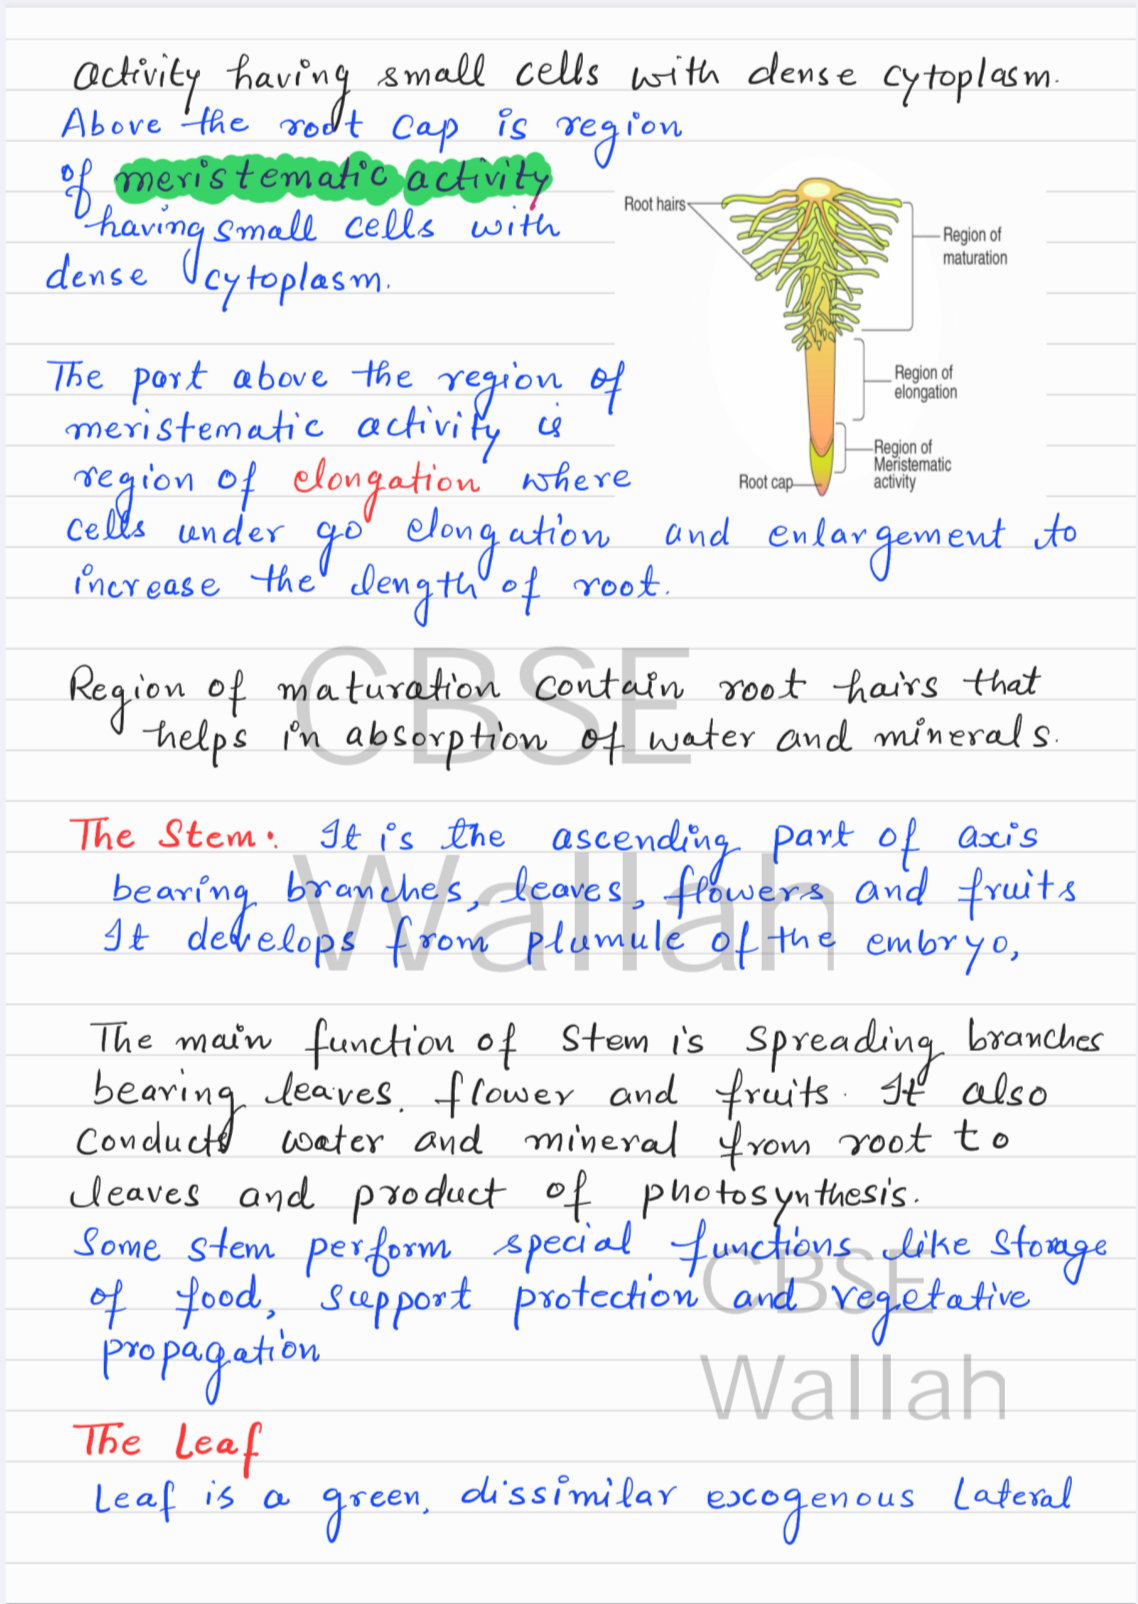 activity having small cells with dense cytoplasm.
Above the root cap is region
of meristematic activity
having small cells with
dense cytoplasm.
Root hairs
Region of
maturation
Region of
elongation
Region of
Meristematic
activity
Root cap
The part above the region of
meristematic activity is
region of elongation where
cells under go elongation and enlargement to
increase the length of root.
Region of maturation contain root hairs that
helps in absorption of water and minerals.
CBSE
Wallah
The Stem: It is the ascending part of axis
bearing branches, leaves, flowers and fruits
It develops from plumule of the embryo,
The main function of Stem is spreading branches
bearing leaves. flower and fruits. It also
conducts water and mineral from root to
leaves and product of photosynthesis.
Some stem perform special functions like storage
of food, support protection and vegetative
propagation
CBSE
Wallah
The Leaf
Leaf is a green, dissimilar exogenous Lateral